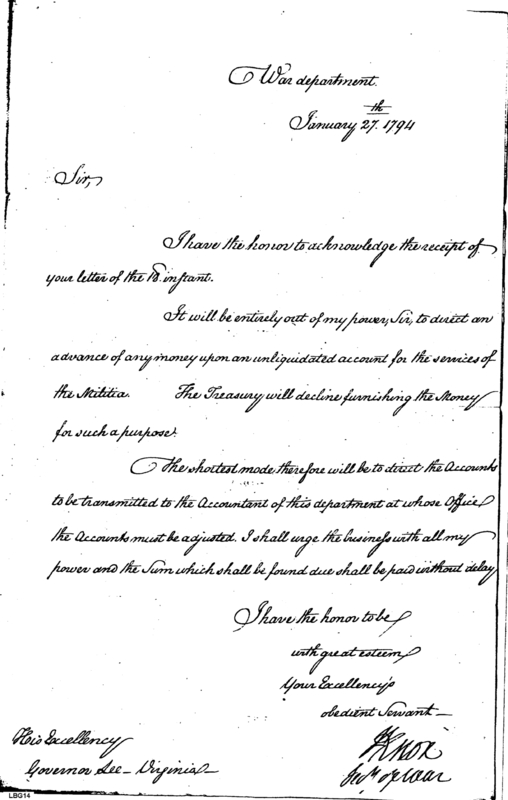 War department.
January 27.th 1794
Sir,
I have the honor to acknowledge the receipt of
your letter of the 18 instant.
It will be entirely out of my power, Sir, to direct an
advance of any money upon an unliquidated account for the services of
the Militia. The Treasury will decline furnishing the Money
for such a purpose.
The shortest mode therefore will be to direct the Accounts
to be transmitted to the Accountant of this department at whose Office
the Accounts must be adjusted. I shall urge the business with all my
power and the Sum which shall be found due shall be paid without delay
I have the honor to be
with great esteem
Your Excellency's
obedient Servant
HKnox
Secy of war
His Excellency
Governor Lee - Virginia -
LBG14